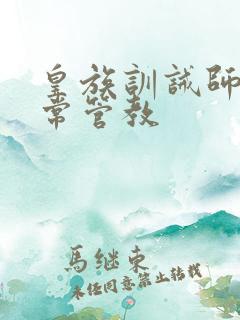 皇族訓誡師
常管教
馬继東
未任同意禁止转载